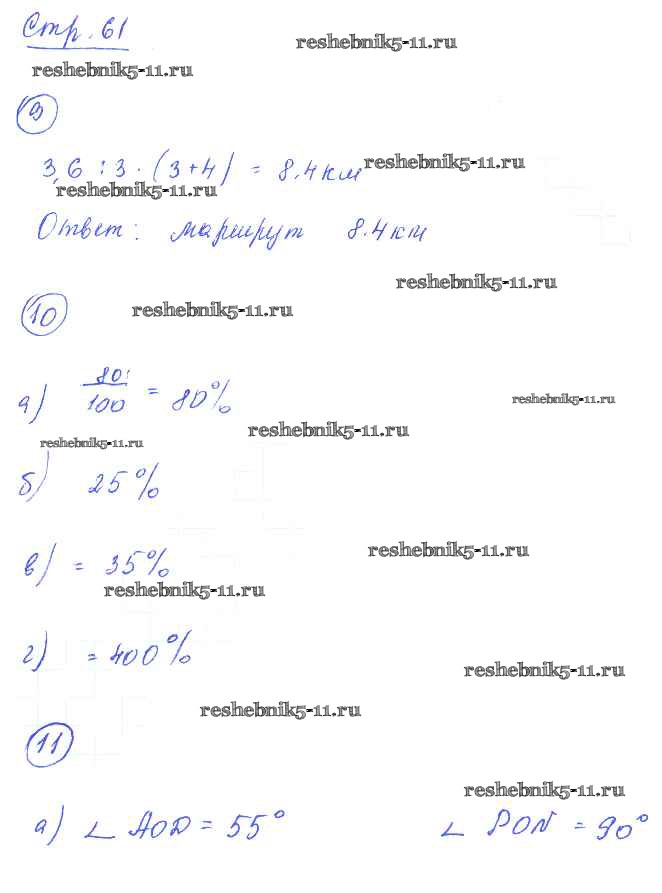 Стр. 61
reshebnik5-11.ru
reshebnik5-11.ru
9
3,6 : 3 · (3+4) = 8.4 км
reshebnik5-11.ru
reshebnik5-11.ru
Ответ: маршрут 8.4 км
reshebnik5-11.ru
10
reshebnik5-11.ru
а) 80/100 = 80%
reshebnik5-11.ru
reshebnik5-11.ru
reshebnik5-11.ru
б) 25%
в) = 35%
reshebnik5-11.ru
reshebnik5-11.ru
г) = 400%
reshebnik5-11.ru
reshebnik5-11.ru
11
reshebnik5-11.ru
а) ∠ AOD = 55° ∠ PON = 90°